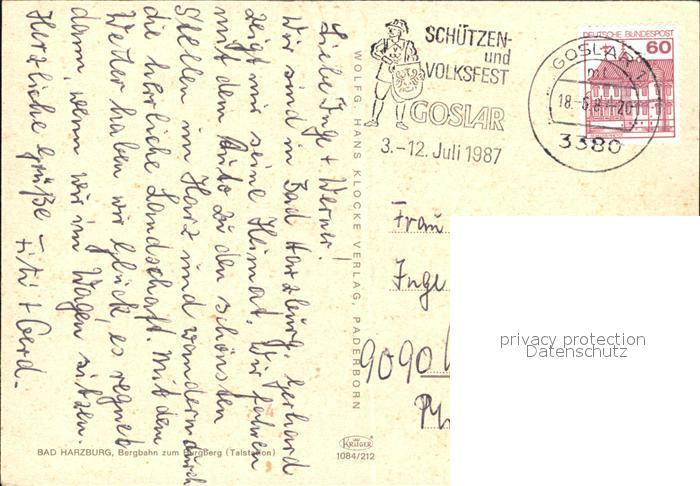 Liebe Inge + Werner!
Wir sind in Bad Harzburg, Gerhard
zeigt mir seine Heimat. Wir fahren
mit dem Auto zu den schönsten
Stellen im Harz und wandern durch
die herrliche Landschaft. Mit dem
Wetter haben wir Glück, es regnet
dann, wenn wir im Wagen sitzen.
Herzliche Grüße –
+ Gerd.
BAD HARZBURG, Bergbahn zum Burgberg (Talstation)
WOLFG. HANS KLOCKE VERLAG, PADERBORN
KRÜGER
1084/212
SCHÜTZEN-
und
VOLKSFEST
GOSLAR
3.–12. Juli 1987
DEUTSCHE BUNDESPOST
60
GOSLAR 1
3380
Frau
Inge
9090
privacy protection
Datenschutz